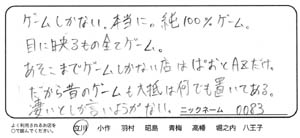 ゲームしかない。本当に。純100%ゲーム。
目に映るもの全てゲーム。
あそこまでゲームしかない店はばおーとAZだけ。
だから昔のゲームも大抵は何でも置いてある。
凄いとしか言いようがない。 ニックネーム 0083
よく利用されるお店を○で囲んで下さい。 立川 小作 羽村 昭島 青梅 高幡 堀之内 八王子